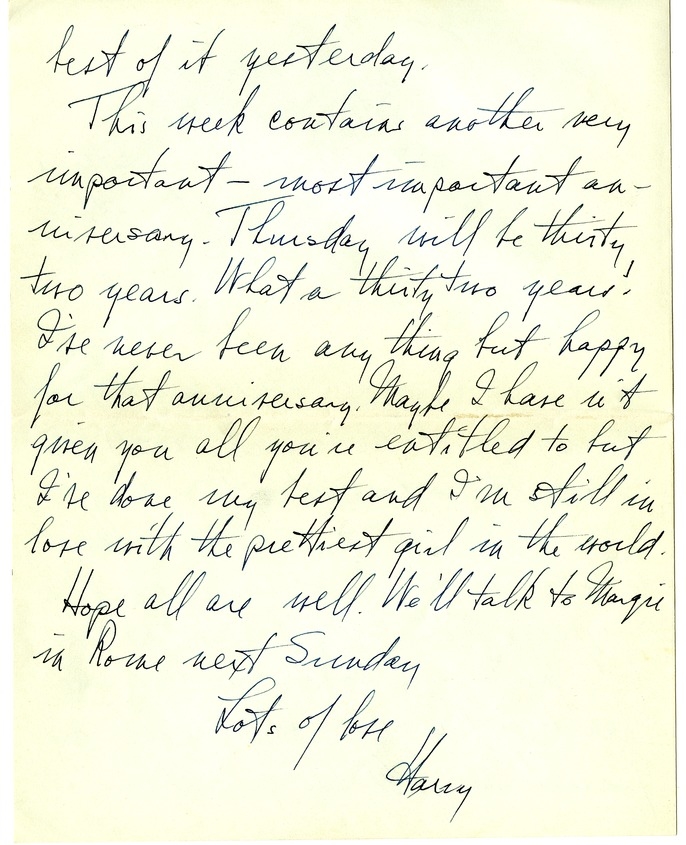 best of it yesterday.
This week contains another very
important – most important an-
niversary. Thursday will be thirty
two years. What a thirty two years!
I've never been any thing but happy
for that anniversary. Maybe I have n't
given you all you're entitled to but
I've done my best and I'm still in
love with the prettiest girl in the world.
Hope all are well. We'll talk to Margie
in Rome next Sunday
Lots of love
Harry